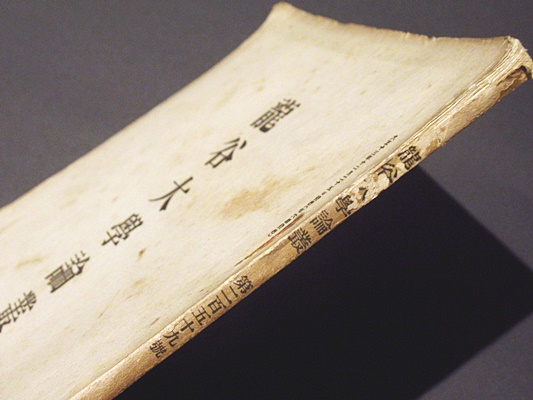 龍谷大學論叢
龍谷大學論叢 第二百五十九號